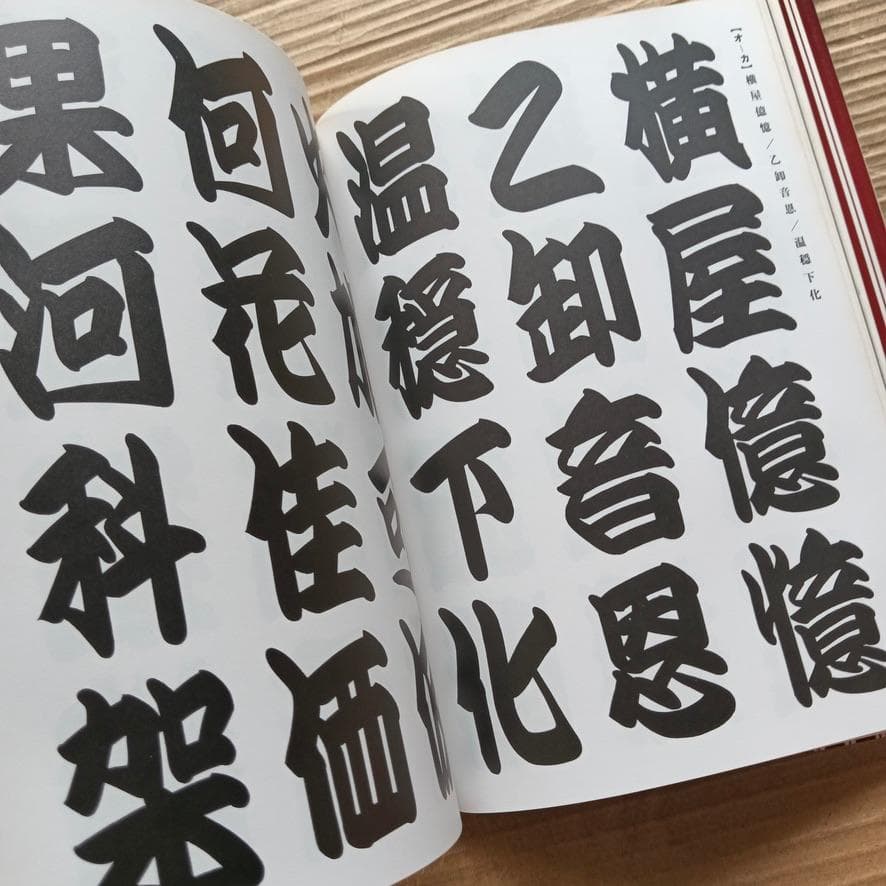 【オ—カ】横屋億憶／乙卸音恩／温穏下化
横屋億憶
乙卸音恩
温穏下化
何花佳価
果河科架